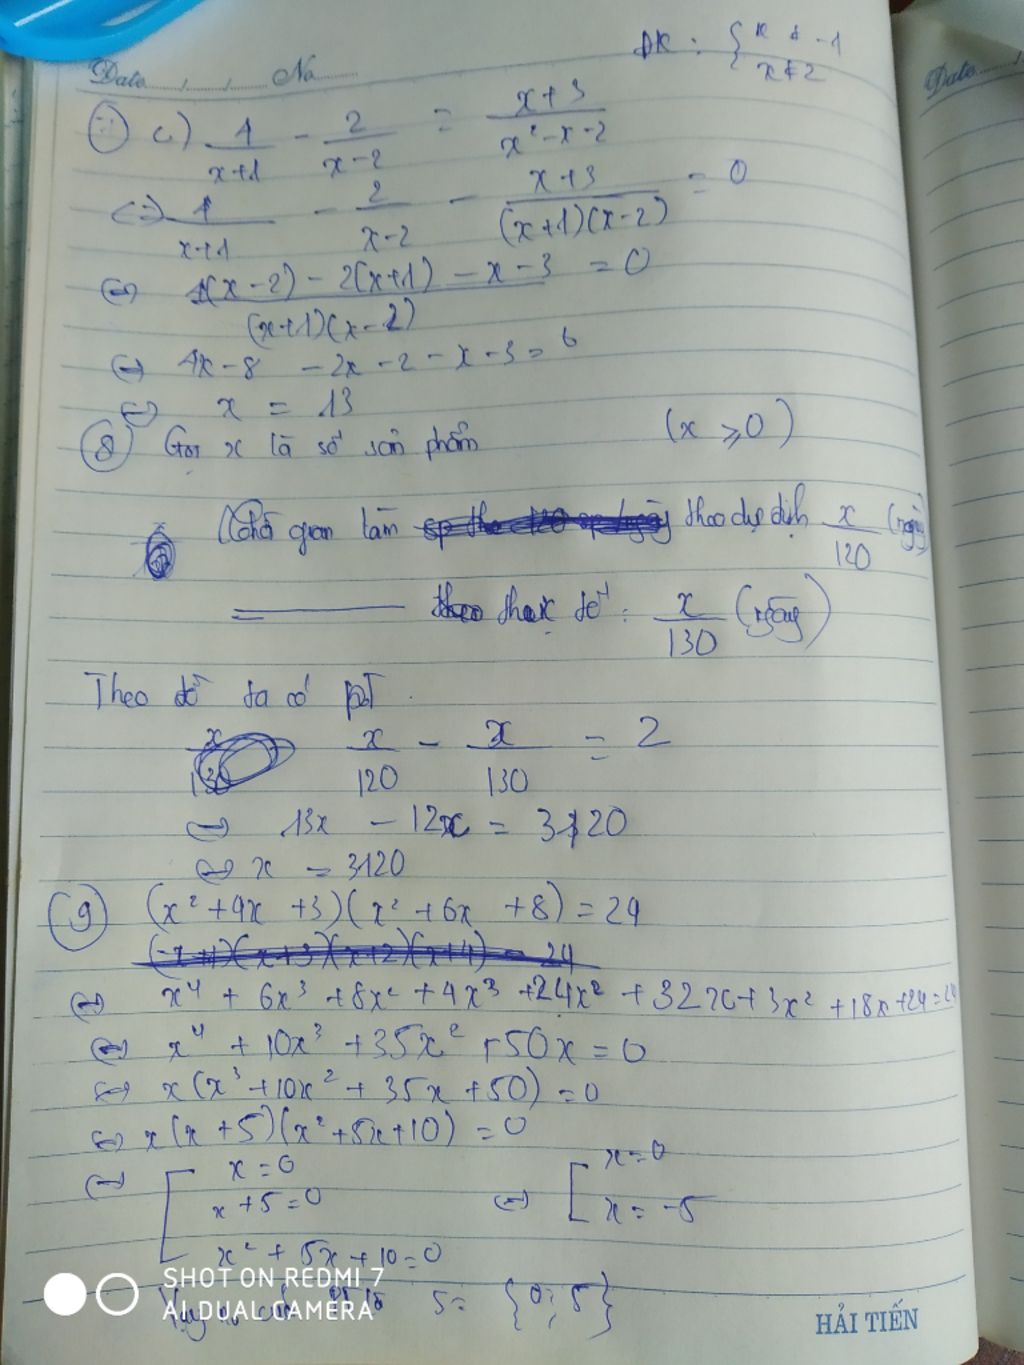 ĐK : { x ≠ -1
x ≠ 2
Date / / No
Date
7 c) 1/(x+1) - 2/(x-2) = (x+3)/(x²-x-2)
<=> 1/(x+1) - 2/(x-2) - (x+3)/((x+1)(x-2)) = 0
<=> (1(x-2) - 2(x+1) - x - 3)/((x+1)(x-2)) = 0
<=> 4x - 8 - 2x - 2 - x - 3 = 0
<=> x = 13
8 Gọi x là số sản phẩm (x ≥ 0)
Thời gian làm theo dự định x/120 (ngày)
theo thực tế : x/130 (ngày)
Theo đề ta có pt
x/120 - x/130 = 2
<=> 13x - 12x = 3120
<=> x = 3120
9 (x² + 4x + 3)(x² + 6x + 8) = 24
(x+1)(x+3)(x+2)(x+4) = 24
<=> x⁴ + 6x³ + 8x² + 4x³ + 24x² + 32x + 3x² + 18x + 24 = 24
<=> x⁴ + 10x³ + 35x² + 50x = 0
<=> x(x³ + 10x² + 35x + 50) = 0
<=> x(x + 5)(x² + 5x + 10) = 0
<=> [ x = 0
x + 5 = 0
x² + 5x + 10 = 0
<=> [ x = 0
x = -5
S = {0; 5}
SHOT ON REDMI 7
AI DUAL CAMERA
HẢI TIẾN